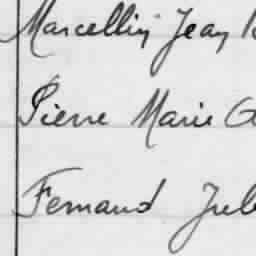 Marcellin Jean
Pierre Marie G
Fernand Jule